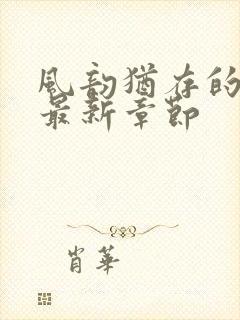 風韵猶存的
最新章節
肖華